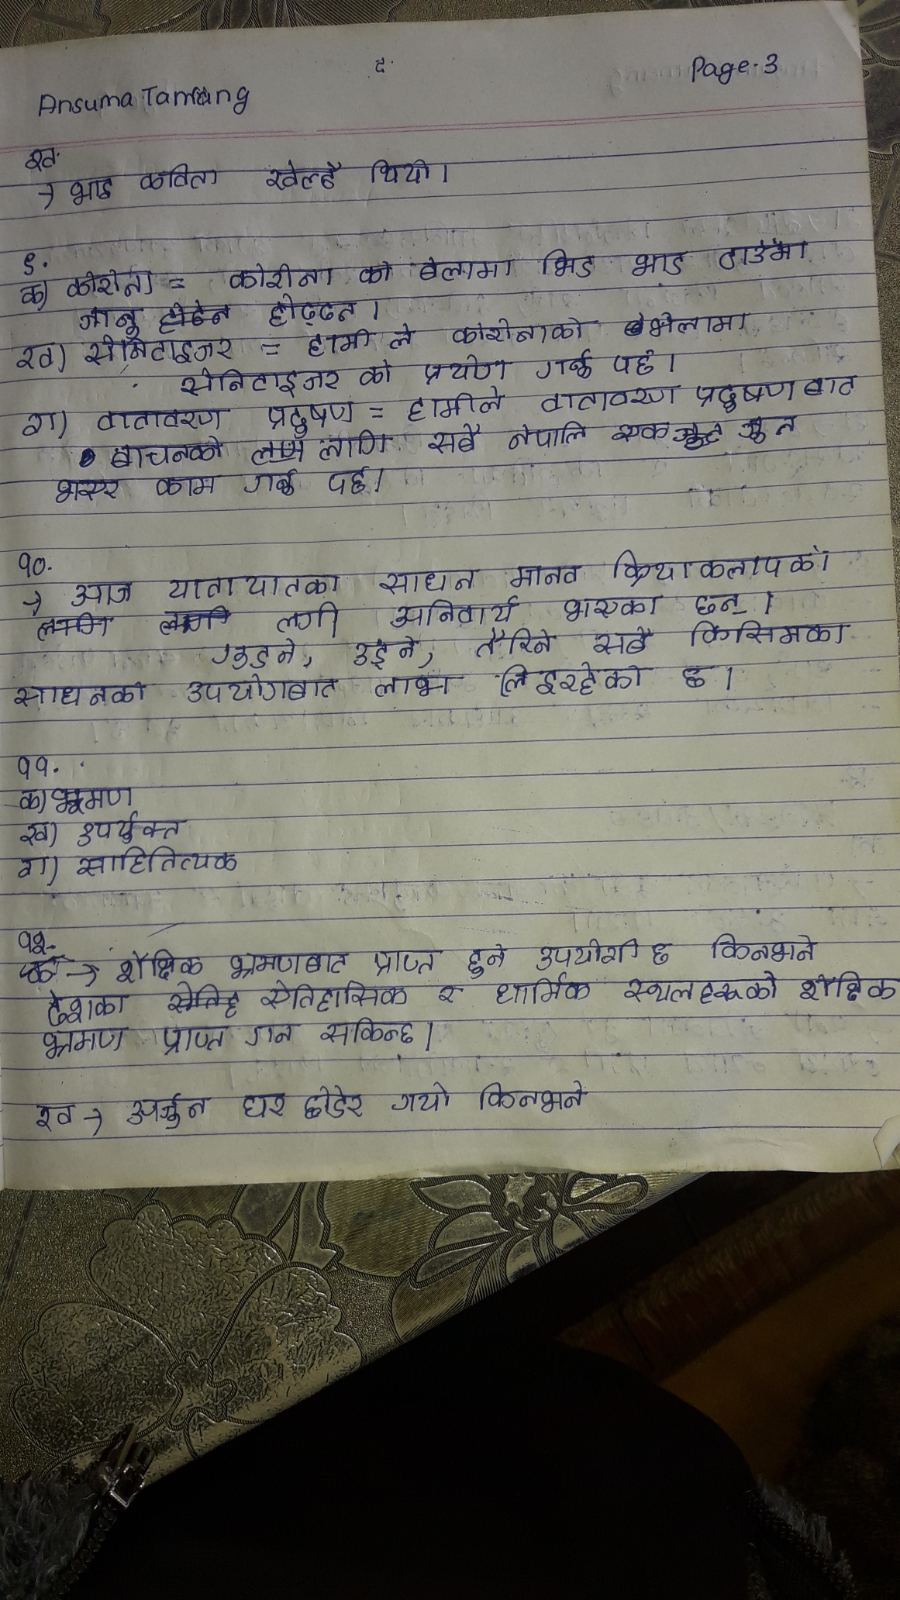 Ansuma Tamang
द.
Page. 3
ख.
→ भाइ कविता खेल्दै थियो।
९.
क) कोरोना = कोरोना को बेलामा भिड भाड ठाउँमा
जानु
ख) सेनिटाइजर = हामी ले कोरोनाको
सेनिटाइजर को प्रयोग गर्नु पर्छ।
ग) वातावरण प्रदुषण = हामीले वातावरण प्रदुषण बाट
बाचनको लागि सबै नेपालि एक जुट
भएर काम गर्नु पर्छ।
१०.
→ आज यातायातका साधन मानव क्रियाकलापको
लगी अनिवार्य भएका छन्।
गुडुने, उड्ने, तैरिने सबै किसिमका
साधनका उपयोगबाट लाभ लिइरहेको छ।
११.
क) भ्रमण
ख) उपर्युक्त
ग) साहितित्यक
१२.
क → शैक्षिक भ्रमणबाट प्राप्त हुने उपयोगी छ किनभने
देशका ऐतिहासिक र धार्मिक स्थलहरूको शैक्षिक
भ्रमण प्राप्त गन सकिन्छ।
ख → अर्जुन घर छोडेर गयो किनभने